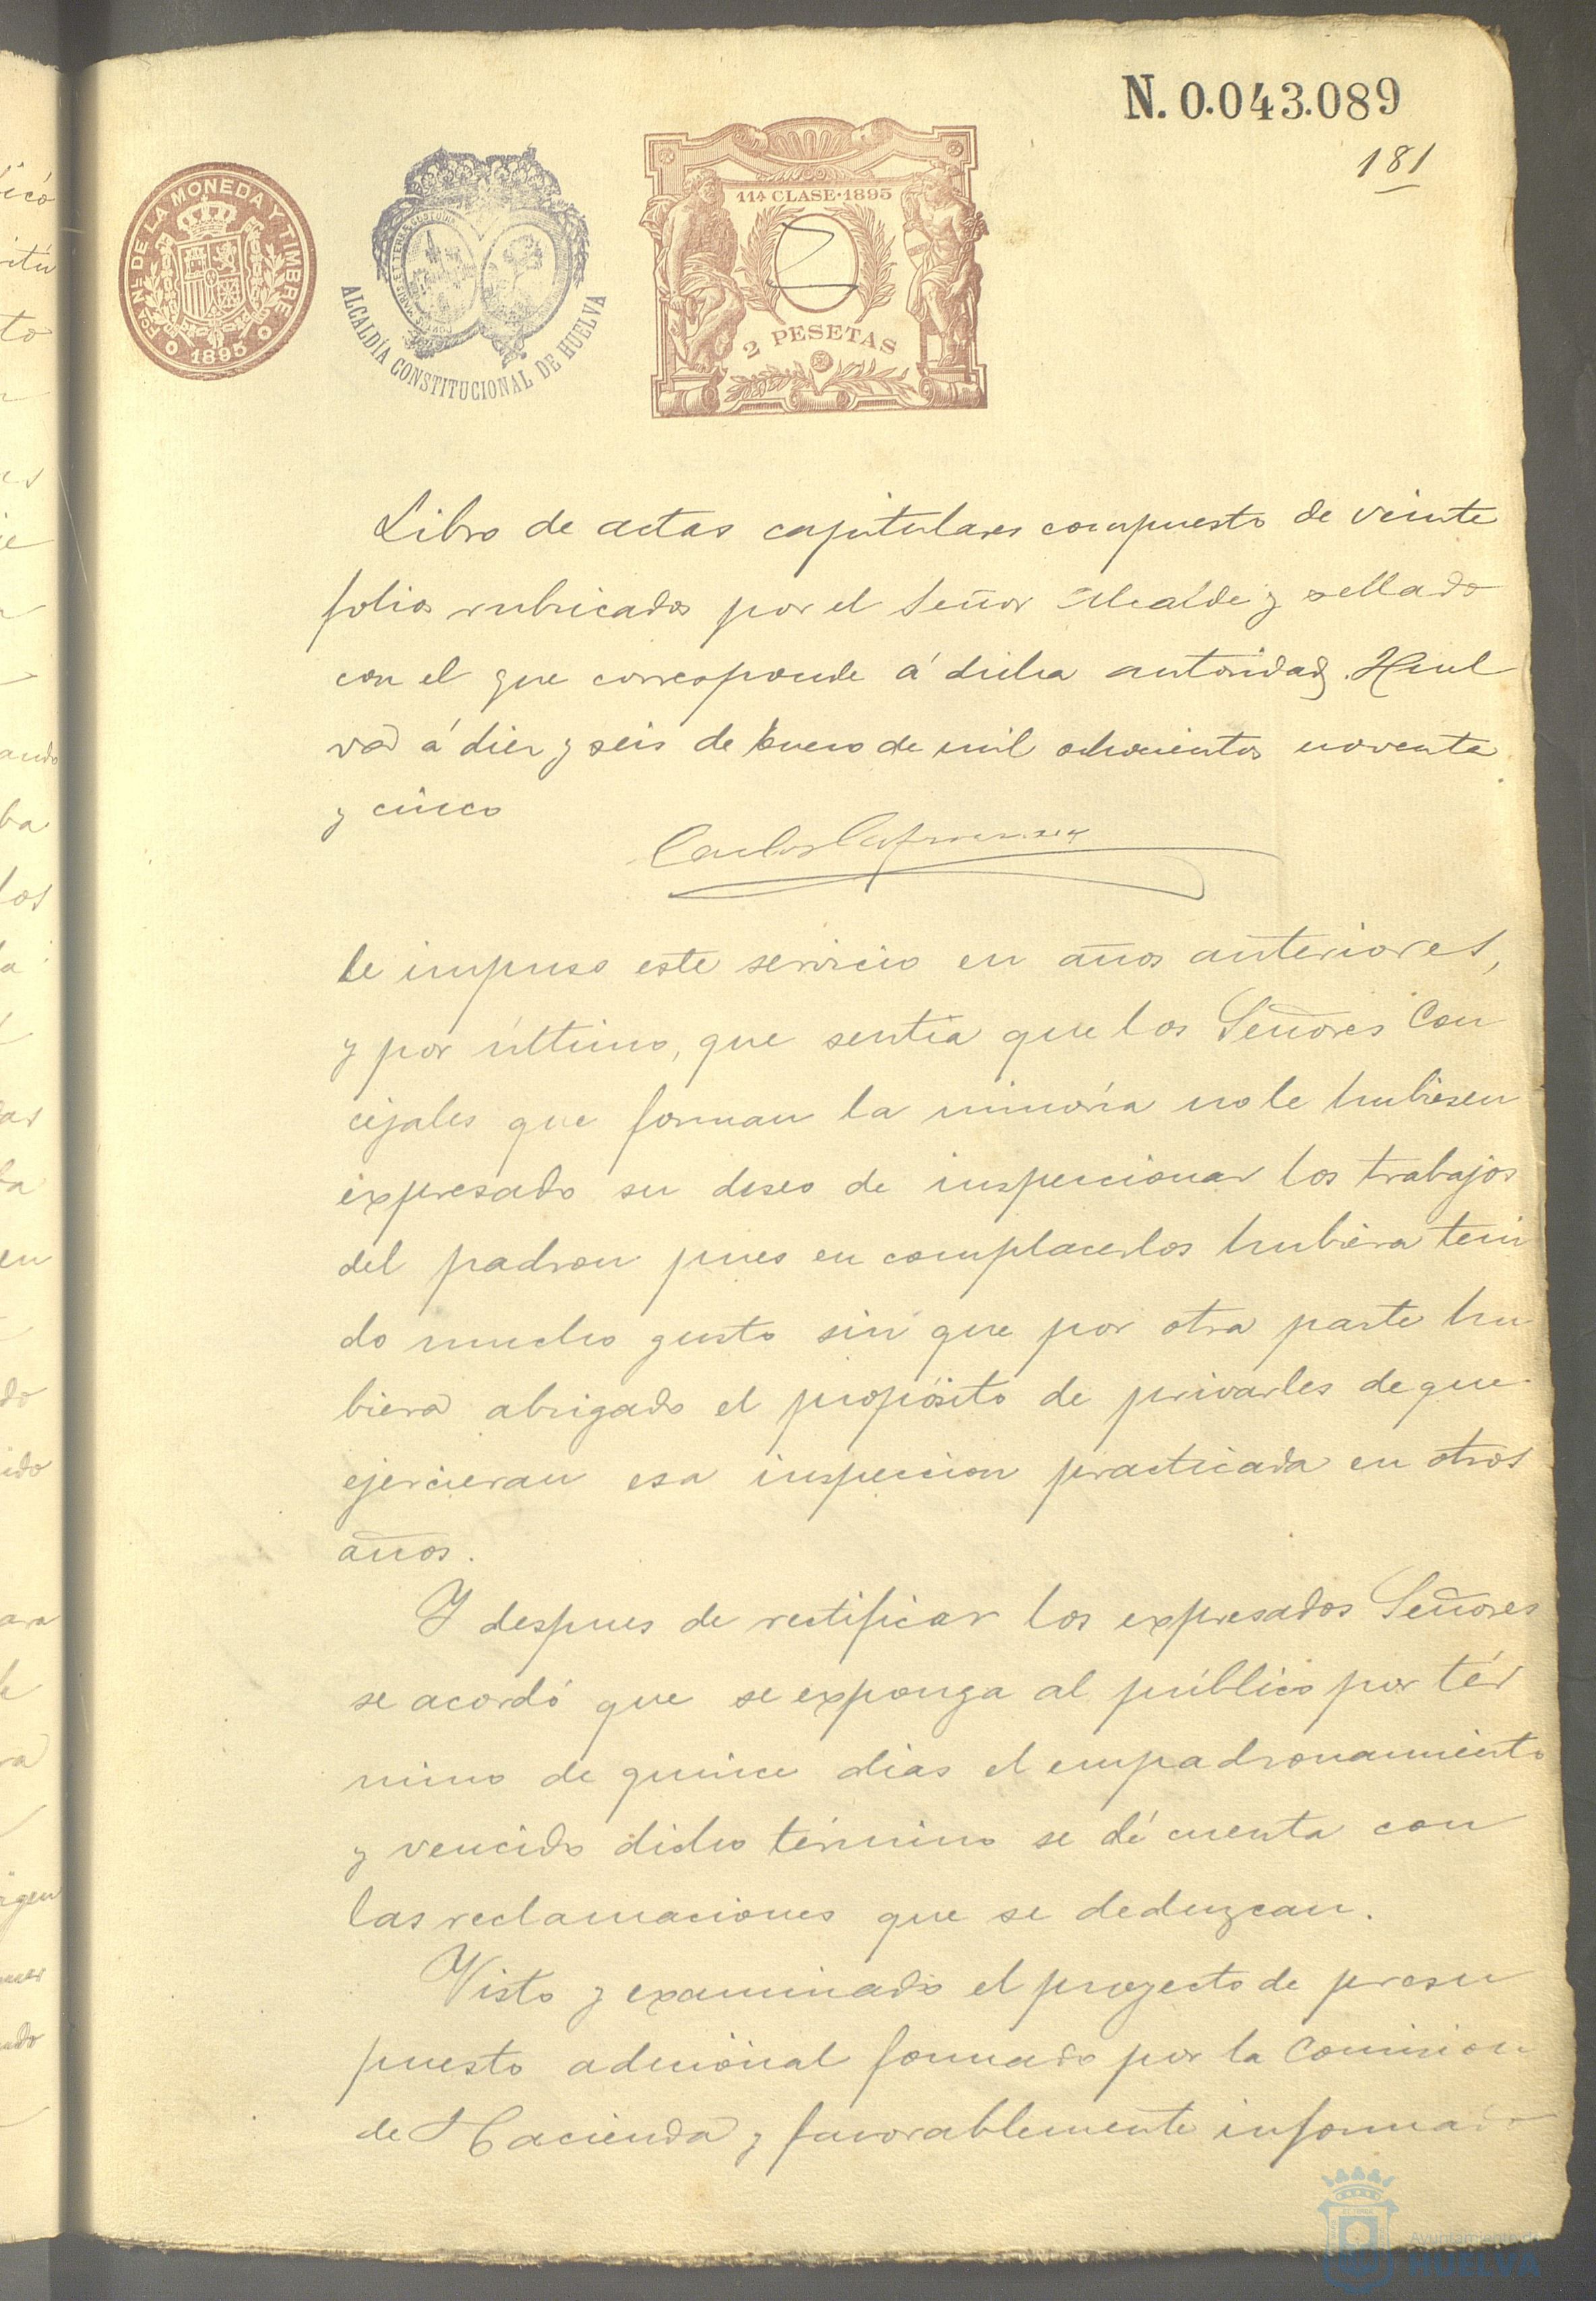 N. 0.043.089
181
FCA. NAL. DE LA MONEDA Y TIMBRE
1895
ALCALDÍA CONSTITUCIONAL DE HUELVA
11ª CLASE·1895
2 PESETAS
Libro de actas capitulares compuesto de veinte
folios rubricados por el Señor Alcalde y sellado
con el que corresponde á dicha autoridad. Huel
va á diez y seis de Enero de mil ochocientos noventa
y cinco
Carlos
le impuso este servicio en años anteriores,
y por último, que sentía que los Señores Con
cejales que forman la minoría no le hubiesen
expresado su deseo de inspeccionar los trabajos
del padron pues en complacerlos hubiera teni
do mucho gusto sin que por otra parte hu
biera abrigado el propósito de privarles de que
ejercieran esa inspeccion practicada en otros
años.
Y despues de rectificar los expresados Señores
se acordó que se exponga al público por tér
mino de quince dias el empadronamiento
y vencido dicho término se dé cuenta con
las reclamaciones que se deduzcan.
Visto y examinado el proyecto de presu
puesto adicional formado por la Comision
de Hacienda y favorablemente informado
Ayuntamiento de
HUELVA